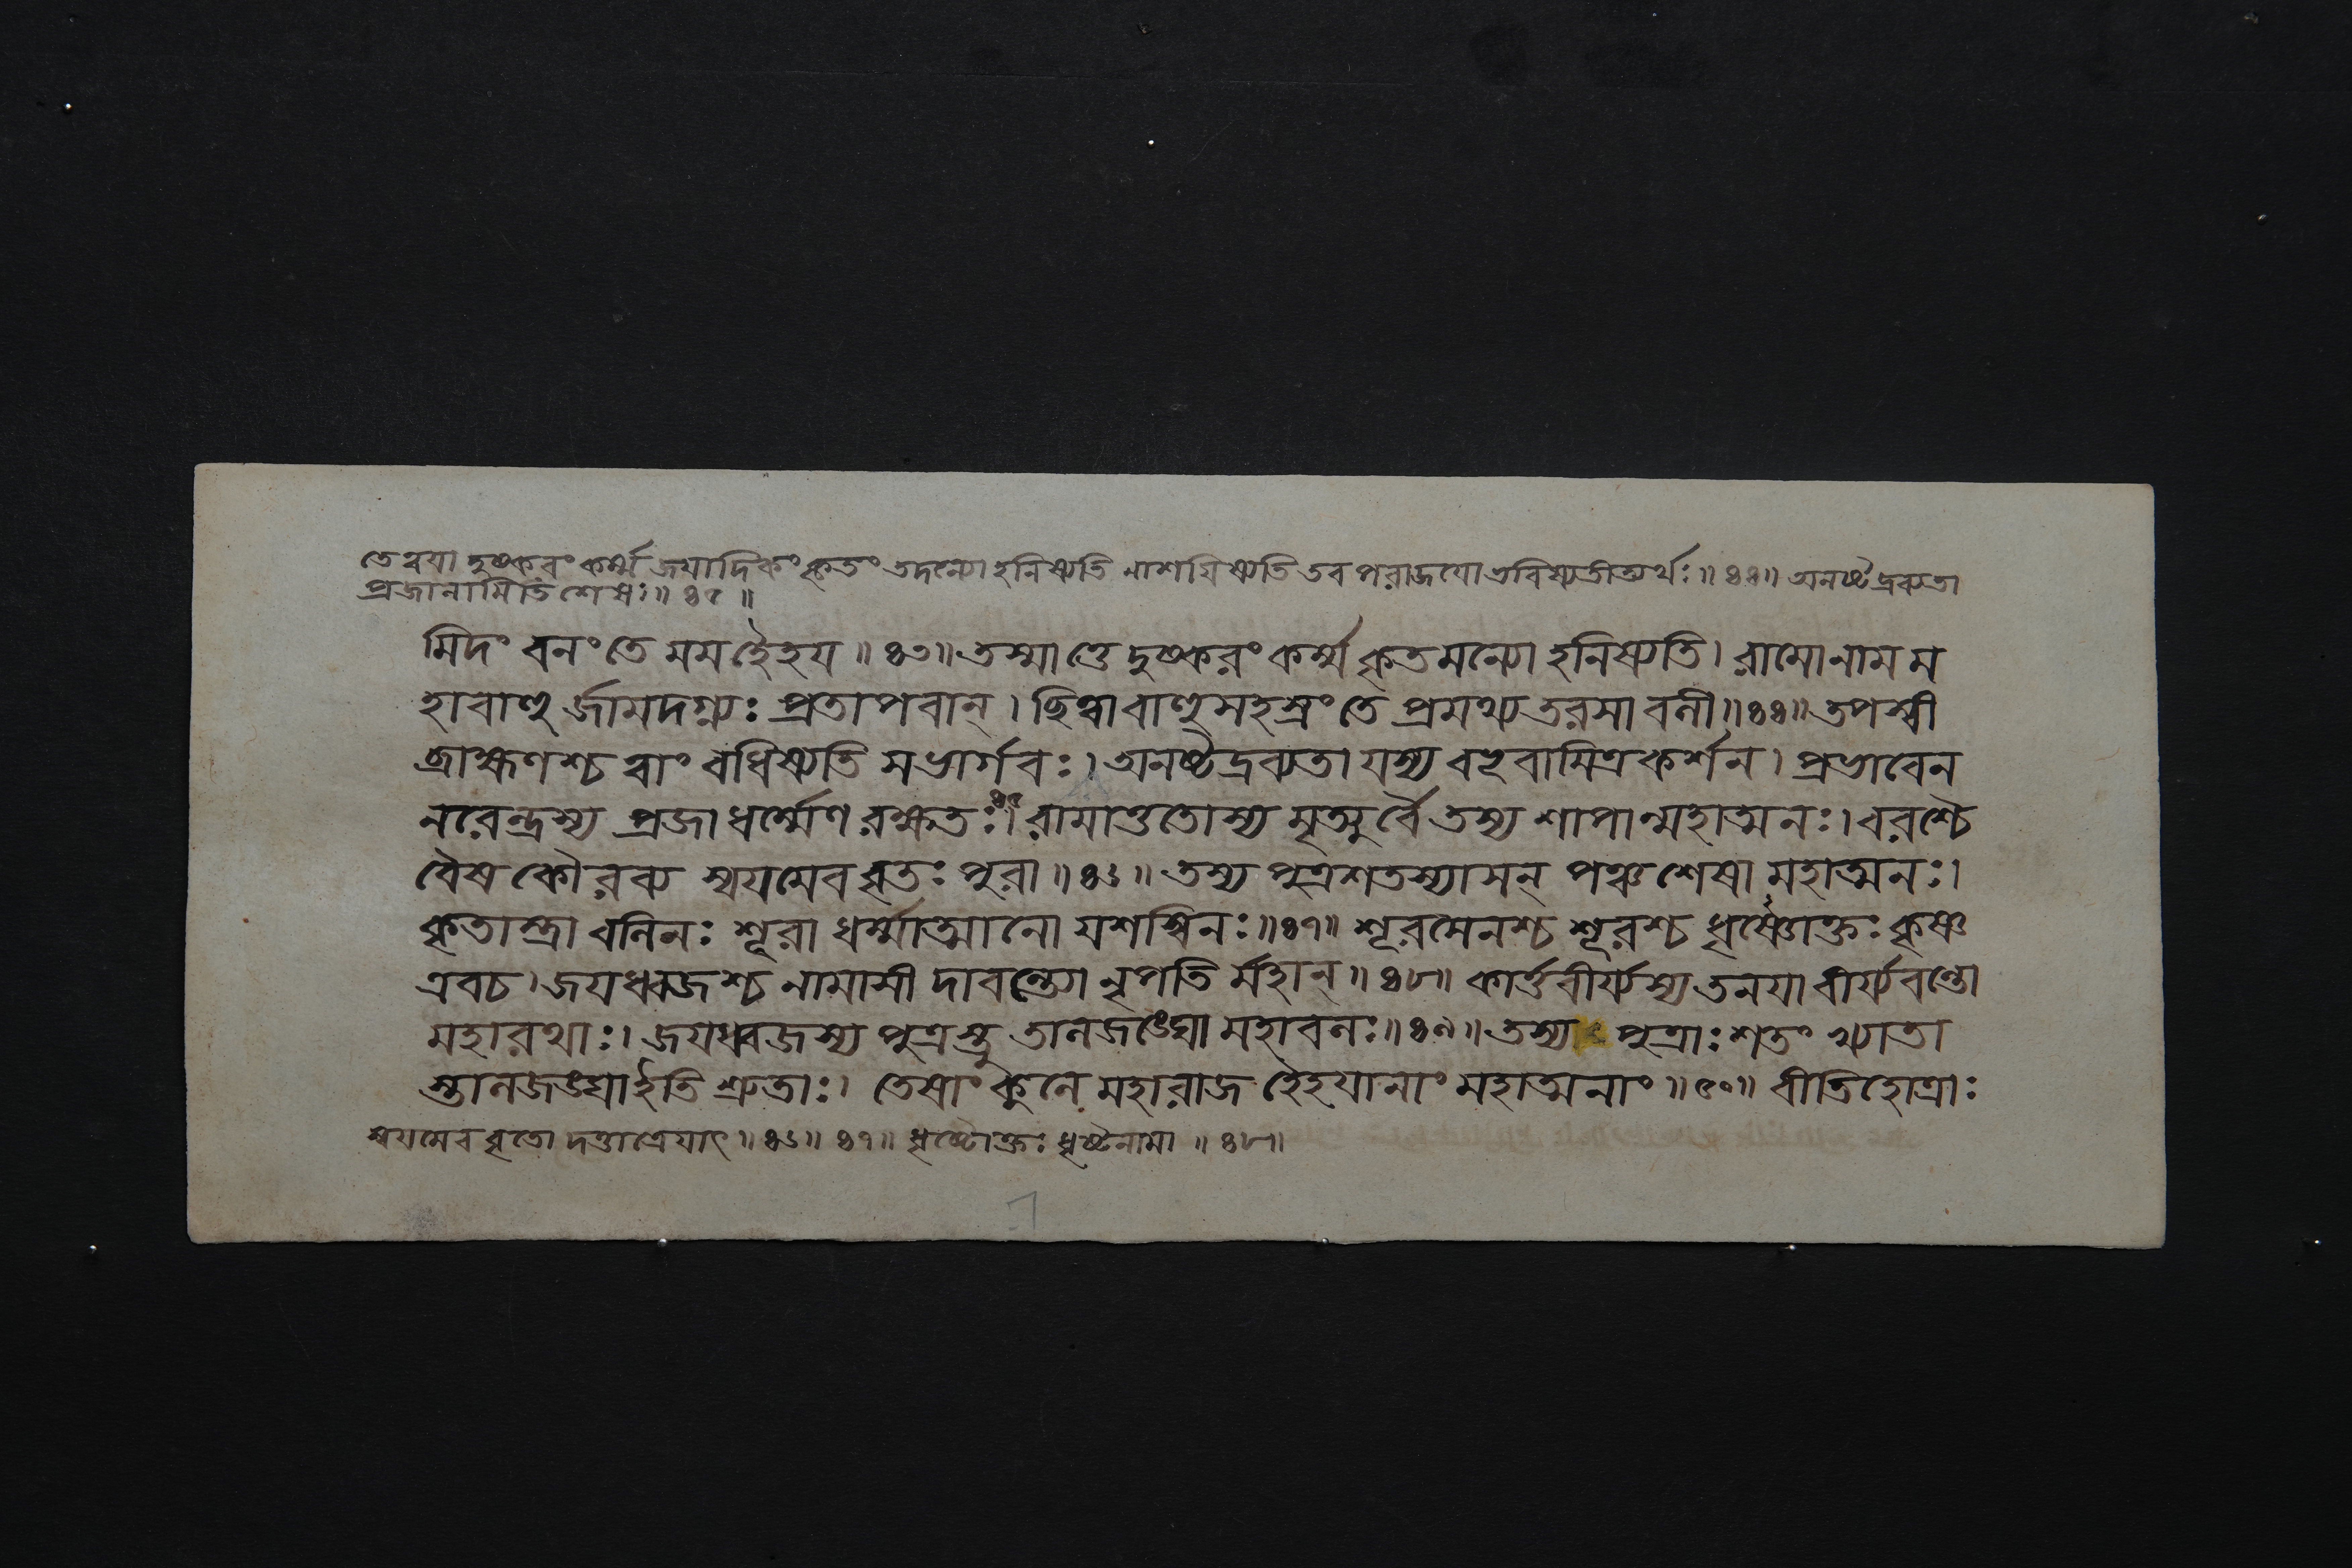 তে ত্বযা দুষ্করং কর্ম্ম জযাদিকং কৃতং তদন্যো হনিষ্যতি নাশযিষ্যতি তব পরাজযো ভবিষ্যতীত্যর্থঃ॥ ৪৪॥ অনষ্টদ্রব্যতা
প্রজানামিতি শেষঃ॥ ৪৫ ॥
মিদং বনং তে মম হৈহয ॥ ৪৩॥ তস্মাত্তে দুষ্করং কর্ম্ম কৃতমন্যো হনিষ্যতি। রামো নাম ম
হাবাহু র্জামদগ্ন্যঃ প্রতাপবান্। ছিত্বা বাহুসহস্রং তে প্রমথ্য তরসা বলী॥ ৪৪॥ তপস্বী
ব্রাহ্মণশ্চ ত্বাং বধিষ্যতি সভার্গবঃ। অনষ্টদ্রব্যতা যস্য বভূবামিত্রকর্শন। প্রভাবেন
নরেন্দ্রস্য প্রজা ধর্ম্মেণ রক্ষতঃ। ৪৫ রামাত্ততোস্য মৃত্যুর্বৈ তস্য শাপান্মহাত্মনঃ। বরশ্চৈ
বৈষ কৌরব্য স্বযমেব বৃতঃ পুরা ॥ ৪৬ ॥ তস্য পুত্রশতস্যাসন্ পঞ্চ শেষা মহাত্মনঃ।
কৃতাস্ত্রা বলিনঃ শূরা ধর্ম্মাত্মানো যশস্বিনঃ॥ ৪৭॥ শূরসেনশ্চ শূরশ্চ ধৃষ্টোক্তঃ কৃষ্ণ
এবচ। জযধ্বজশ্চ নামাসী দাবন্ত্যো নৃপতি র্মহান্ ॥ ৪৮॥ কার্ত্তবীর্য্যস্য তনযা বীর্য্যবন্তো
মহারথাঃ। জযধ্বজস্য পুত্রস্তু তালজঙ্ঘো মহাবলঃ॥ ৪৯॥ তস্য পুত্রাঃ শতং খ্যাতা
স্তালজঙ্ঘা ইতি শ্রুতাঃ। তেষাং কুলে মহারাজ হৈহযানাং মহাত্মনাং ॥ ৫০॥ বীতিহোত্রাঃ
স্বযমেব বৃতো দত্তাত্রেযাৎ॥ ৪৬॥ ৪৭॥ ধৃষ্টোক্তঃ ধৃষ্টনামা ॥ ৪৮॥